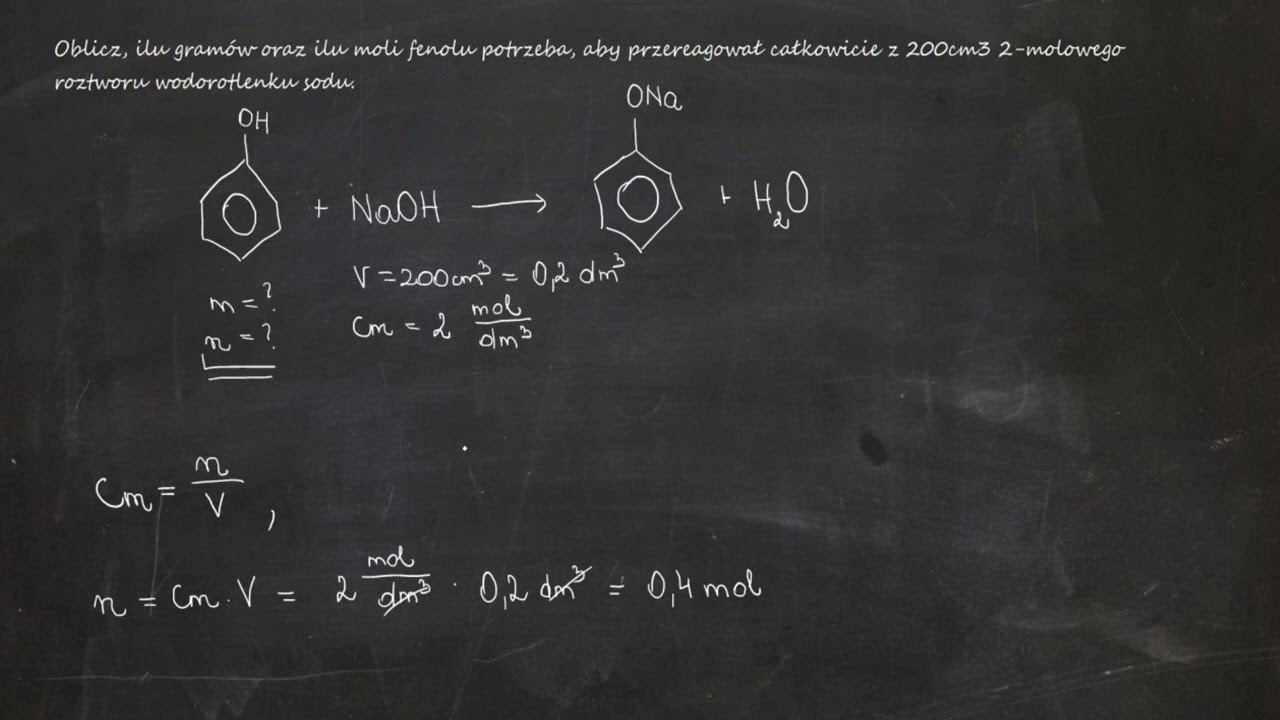 Oblicz, ilu gramów oraz ilu moli fenolu potrzeba, aby przereagował całkowicie z 200cm3 2-molowego
roztworu wodorotlenku sodu.
OH ONa
+ NaOH → + H₂O
V = 200cm³ = 0,2 dm³
m = ?
Cm = 2 mol/dm³
n = ?
Cm = n/V ,
n = Cm · V = 2 mol/dm³ · 0,2 dm³ = 0,4 mol